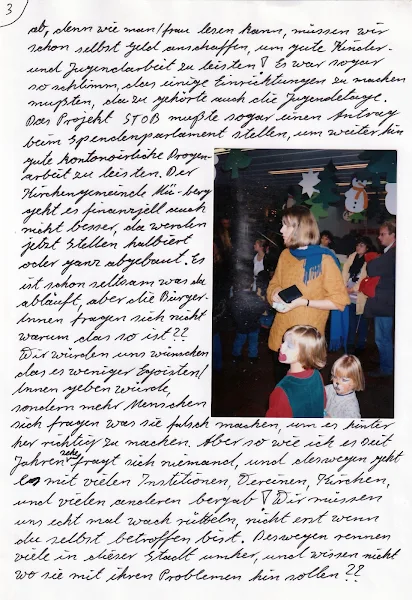 3
ab, denn wie man/frau lesen kann, müssen wir
schon selbst geld anschaffen, um gute Kinder-
und Jugendarbeit zu leisten! Es war sogar
so schlimm, das einige Einrichtungen zu machen
mußten, da zu gehörte auch die Jugendetage.
Das Projekt STOB mußte sogar einen Antrag
beim Spendenparlament stellen, um weiter hin
gute kontonuirliche Drogen-
arbeit zu leisten. Der
Kirchengemeinde Mü-berg
geht es finanzjell auch
nicht besser, da werden
jetzt Stellen halbiert
oder ganz abgebaut. Es
ist schon seltsam was da
abläuft, aber die Bürger-
innen fragen sich nicht
warum das so ist??
Wir würden uns wünschen
das es weniger Egoisten/
Innen geben würde,
sondern mehr Menschen
sich fragen was sie falsch machen, um es hinter
her richtig zu machen. Aber so wie ich es seit
Jahren sehe fragt sich niemand, und deswegen geht
es mit vielen Institionen, Vereinen, Kirchen,
und vielen anderen bergab! Wir müssen
uns echt mal wach rütteln, nicht erst wenn
du selbst betroffen bist. Deswegen rennen
viele in dieser Stadt umher, und wissen nicht
wo sie mit ihren Problemen hin sollen??